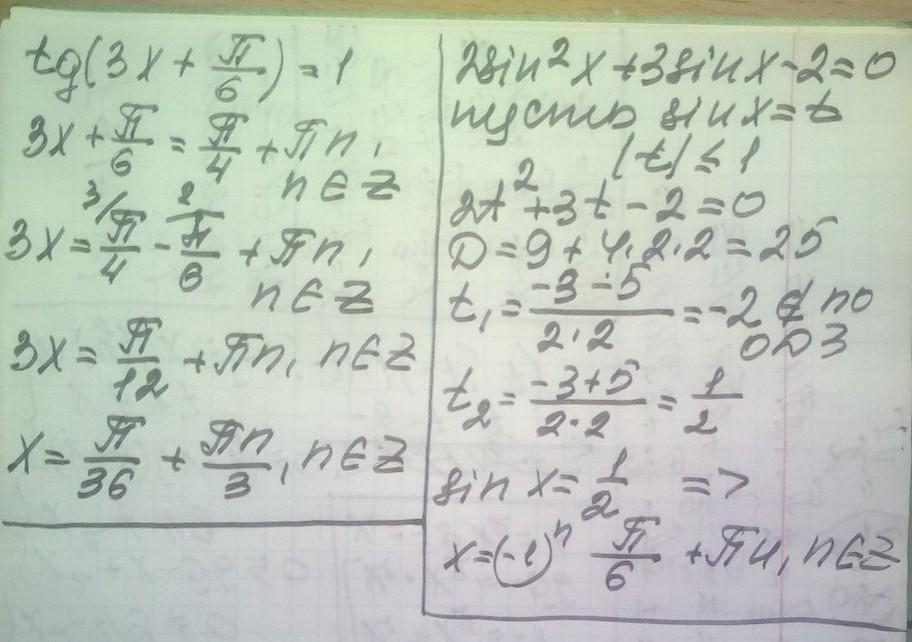 tg(3x + π/6) = 1
3x + π/6 = π/4 + πn,
n ∈ Z
3x = 3/ π/4 - 2/ π/6 + πn,
n ∈ Z
3x = π/12 + πn, n ∈ Z
x = π/36 + πn/3, n ∈ Z
2sin²x + 3sinx - 2 = 0
пусть sinx = t
|t| ≤ 1
2t² + 3t - 2 = 0
D = 9 + 4·2·2 = 25
t₁ = (-3-5)/(2·2) = -2 ∉ по
ОДЗ
t₂ = (-3+5)/(2·2) = 1/2
sin x = 1/2 =>
x = (-1)ⁿ π/6 + πn, n ∈ Z